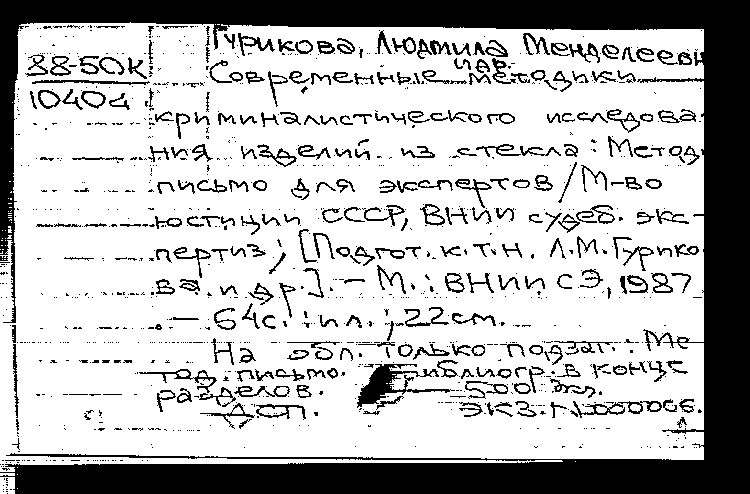 Гурикова, Людмила Менделеевн
и др.
88-50К Современные методики
10404
криминалистического исследова-
ния изделий из стекла: Метод.
письмо для экспертов / М-во
юстиции СССР, ВНИИ судеб. экс-
пертиз; [Подгот. к.т.н. Л.М. Гурико-
ва и др.]. — М.: ВНИИСЭ, 1987
. — 64с.: ил.; 22см.
На обл. только подзаг.: Ме
тод. письмо. Библиогр. в конце
разделов. — 500 экз.
ДСП. экз. N 000006.